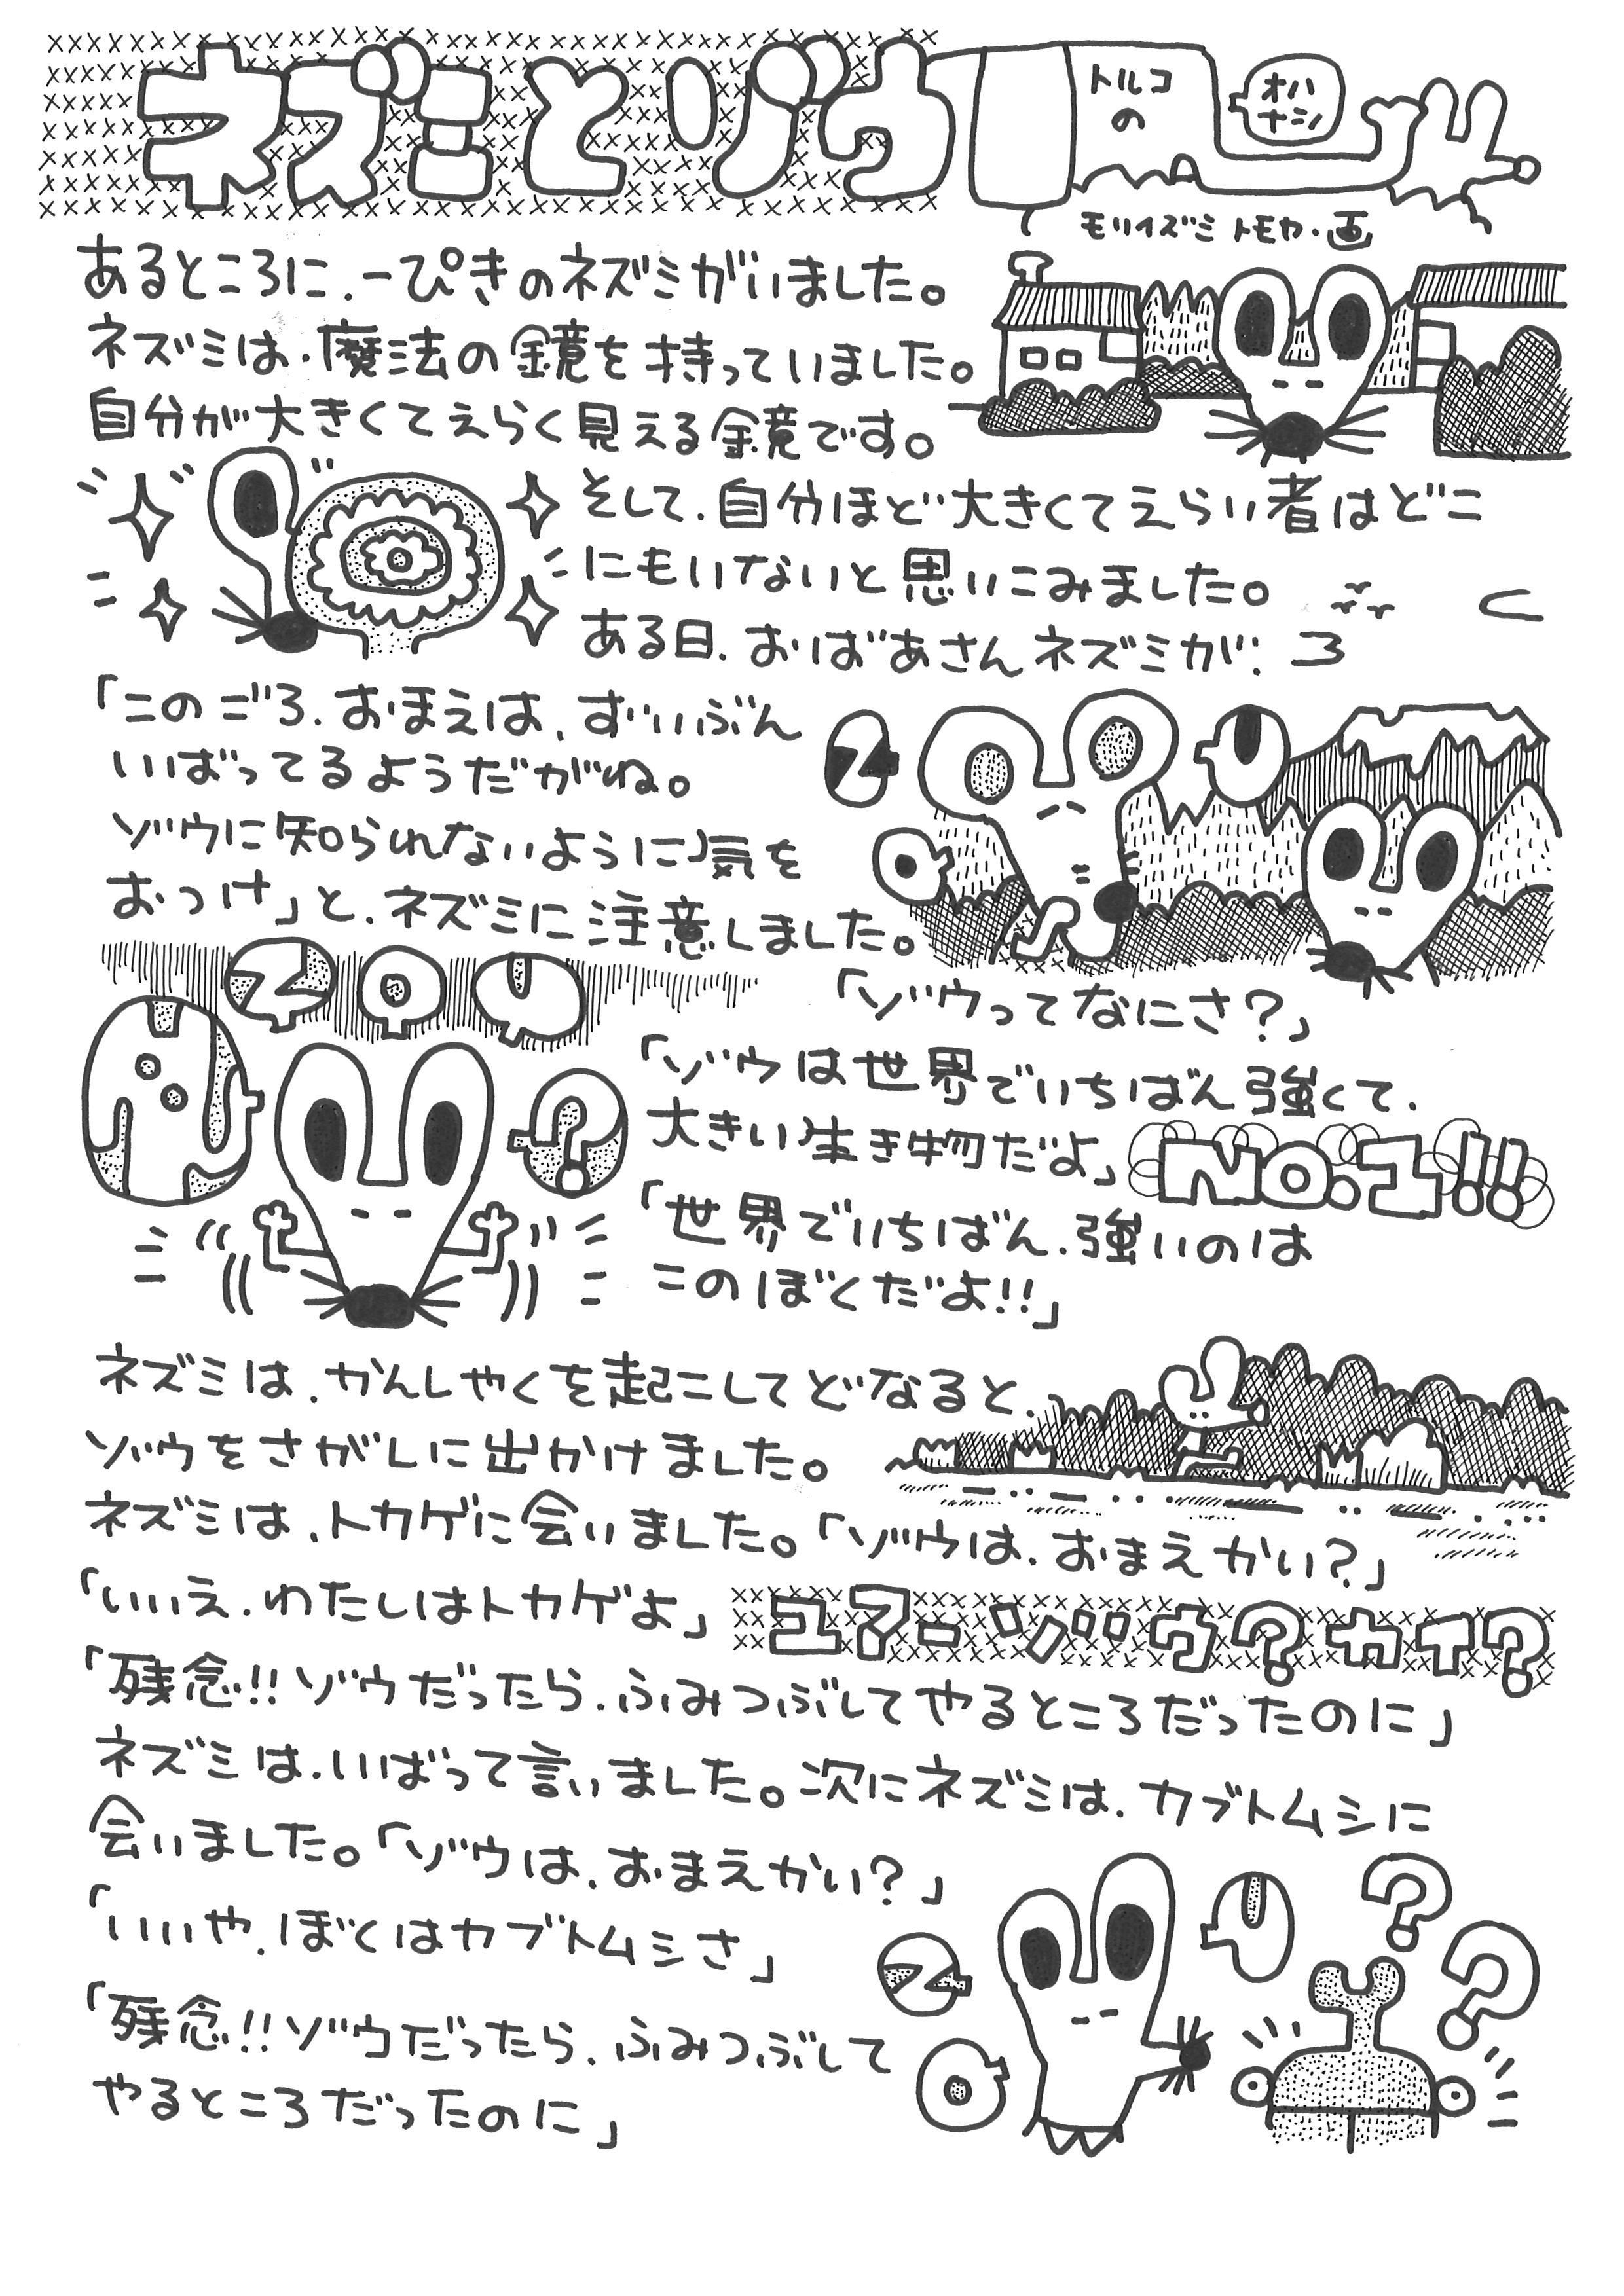 ネズミとゾウ
トルコ
の
オハ
ナシ
モリイズミトモヤ・画
あるところに、一ぴきのネズミがいました。
ネズミは、魔法の鏡を持っていました。
自分が大きくてえらく見える鏡です。
そして、自分ほど大きくてえらい者はどこ
にもいないと思いこみました。
ある日、おばあさんネズミが、
「このごろ、おまえは、ずいぶん
いばってるようだがね。
ゾウに知られないように気を
おつけ」と、ネズミに注意しました。
Z
O
U
Z
O
U
?
「ゾウってなにさ?」
「ゾウは世界でいちばん強くて、
大きい生き物だよ」
NO.1!!
「世界でいちばん、強いのは
このぼくだよ!!」
ネズミは、かんしゃくを起こしてどなると、
ゾウをさがしに出かけました。
ネズミは、トカゲに会いました。「ゾウは、おまえかい?」
「いいえ、わたしはトカゲよ」
ユアーゾウ?カイ?
「残念!!ゾウだったら、ふみつぶしてやるところだったのに」
ネズミは、いばって言いました。次にネズミは、カブトムシに
会いました。「ゾウは、おまえかい?」
「いいや、ぼくはカブトムシさ」
「残念!!ゾウだったら、ふみつぶして
やるところだったのに」
Z
O
U
?
?